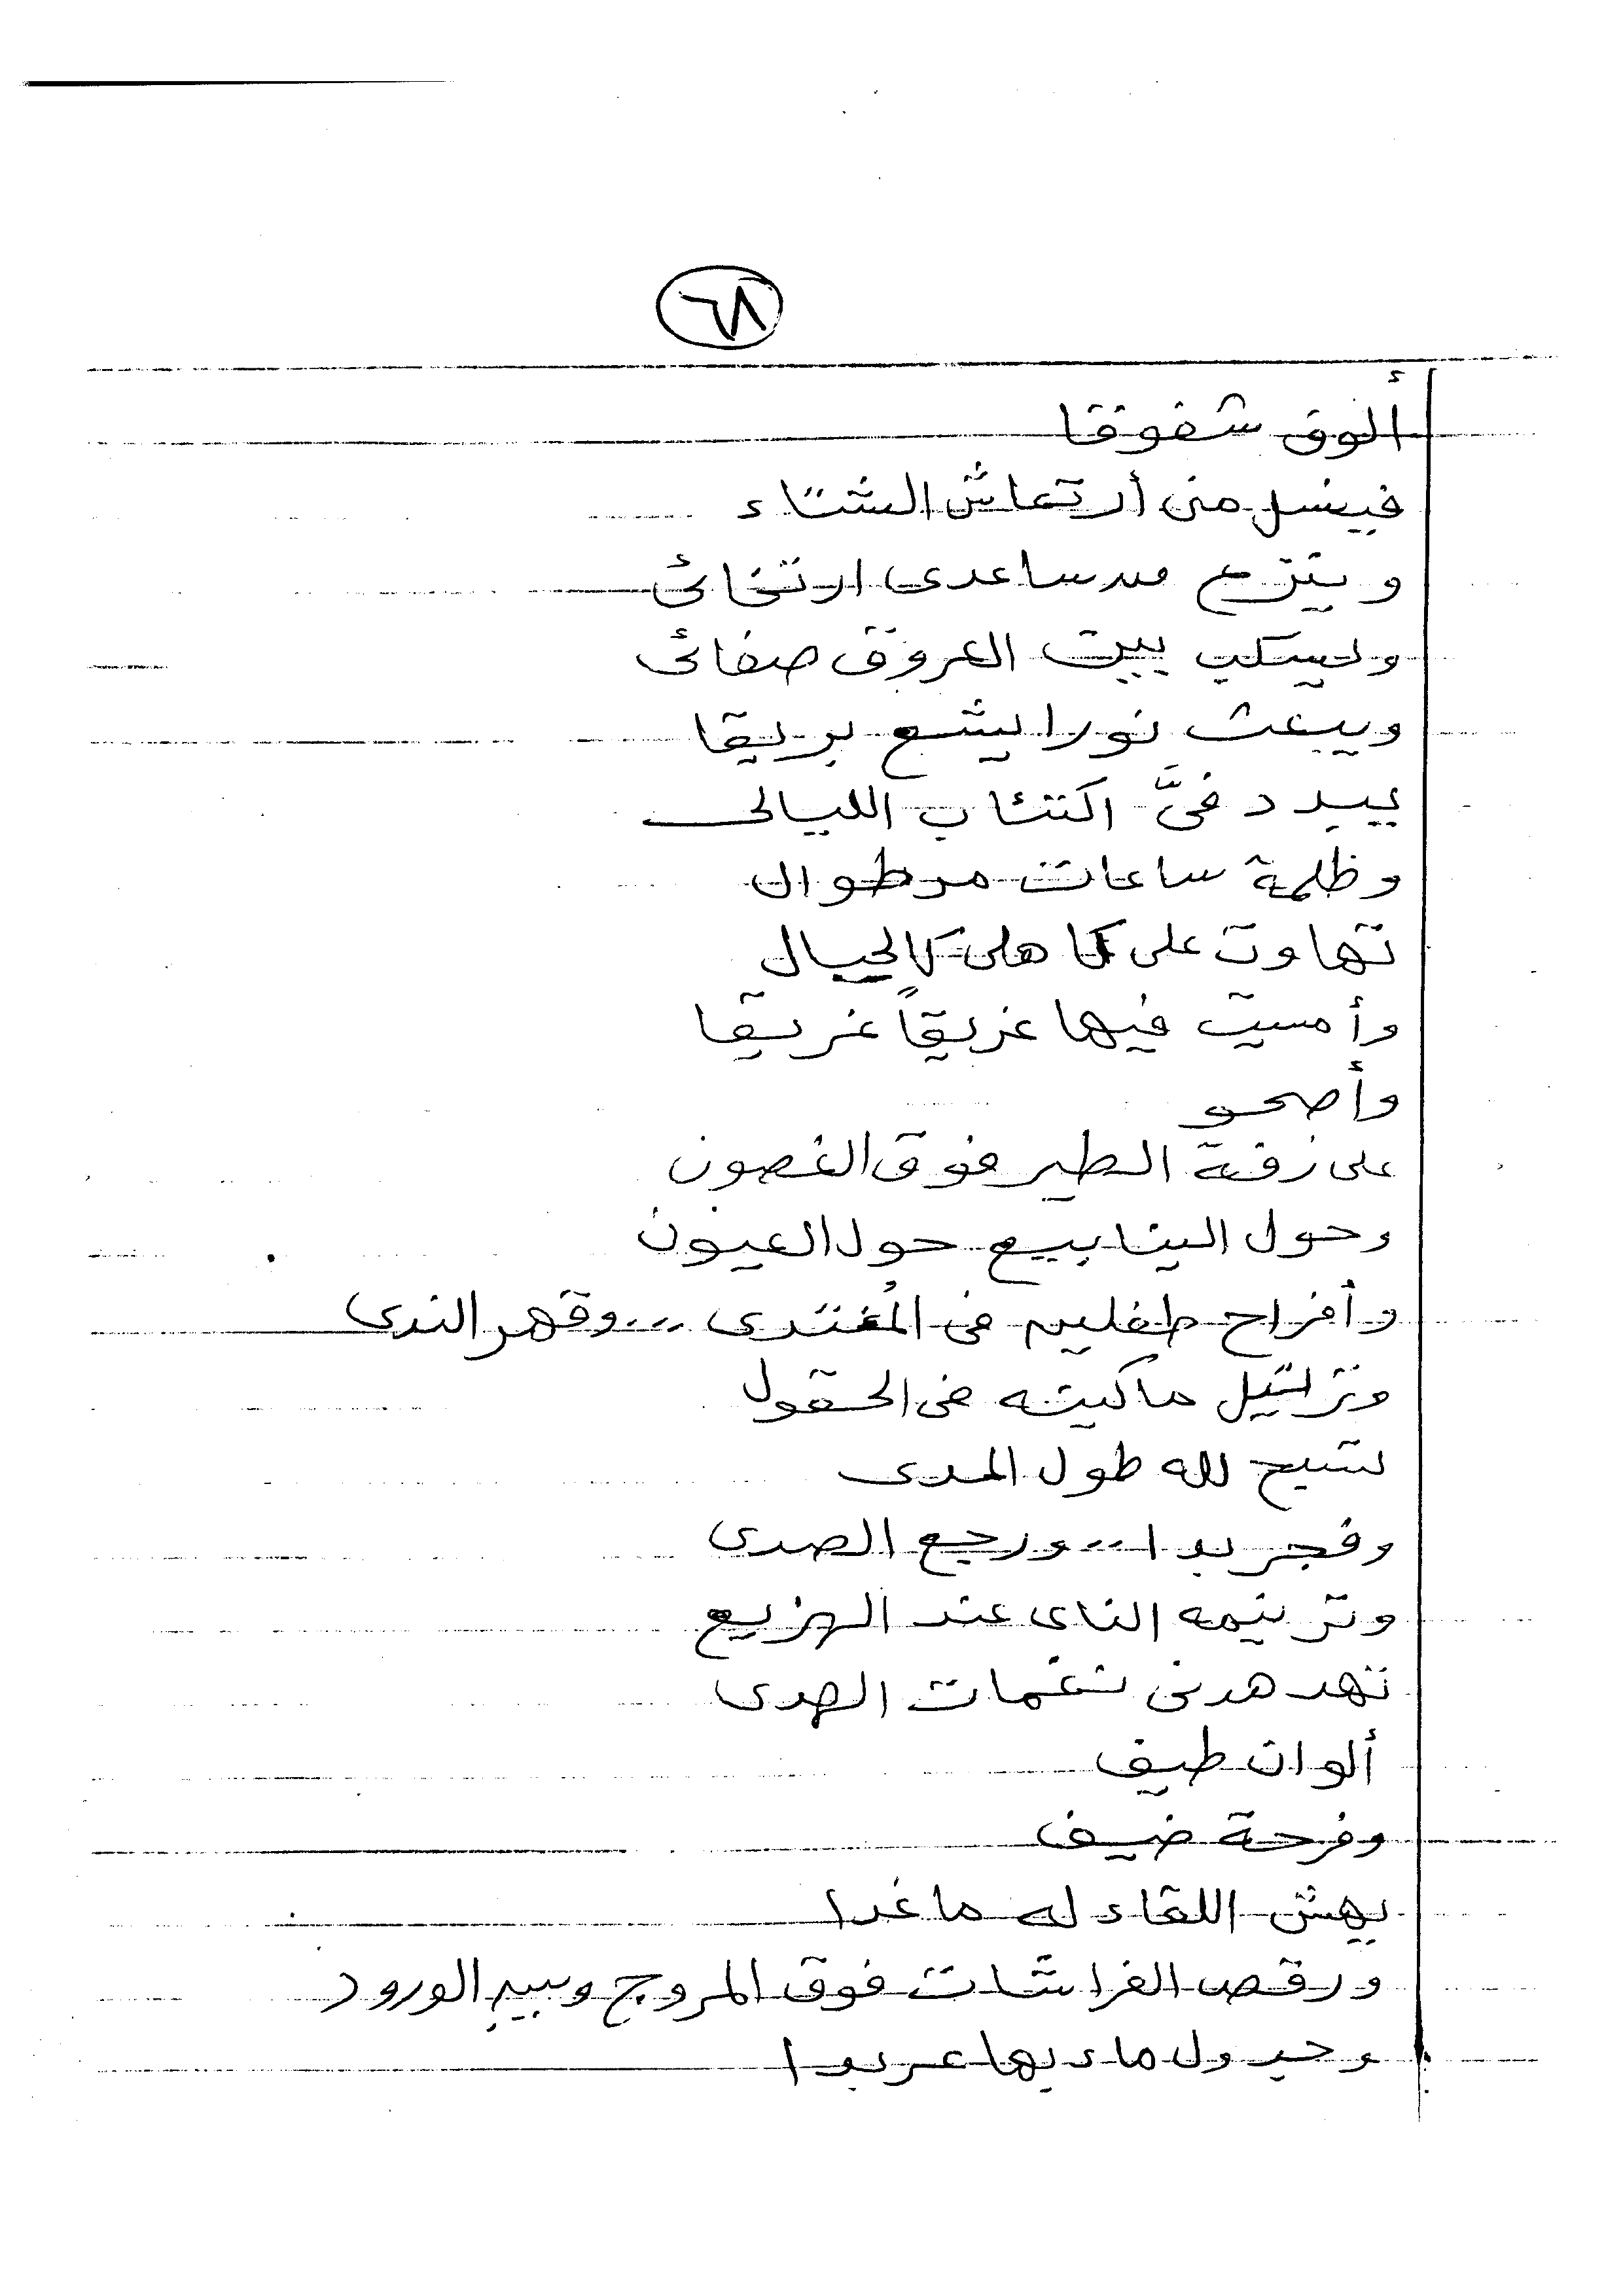 ٦٨
ألوق شفوقا
فيغسل منى أرتعاش الشتاء
وينزع من ساعدى ارتخائى
ويسكب بين العروق صفائى
ويبعث نورا يشع بريقا
يبدد فىَّ اكتئاب الليالى
وظلمة ساعات مر طوال
تهاوت على كاهلى كالجبال
وأمسيت فيها غريقاً غريقا
وأصحو
على زقة الطير فوق الغصون
وحول الينابيع حول العيون
وأفراح طفلين فى المُغتدى ... وقهر الندى
وترتيل ماكينه فى الحقول
تسبح لله طول المدى
وفجر بدا .. ورجع الصدى
وترنيمه الناى عند الهزيع
تهدهدنى نغمات الهدى
ألوان طيف
وفرحة ضيف
يهش اللقاء له ما غدا
ورقص الفراشات فوق المروج وبين الورود
وجدول ماء بها عربدا